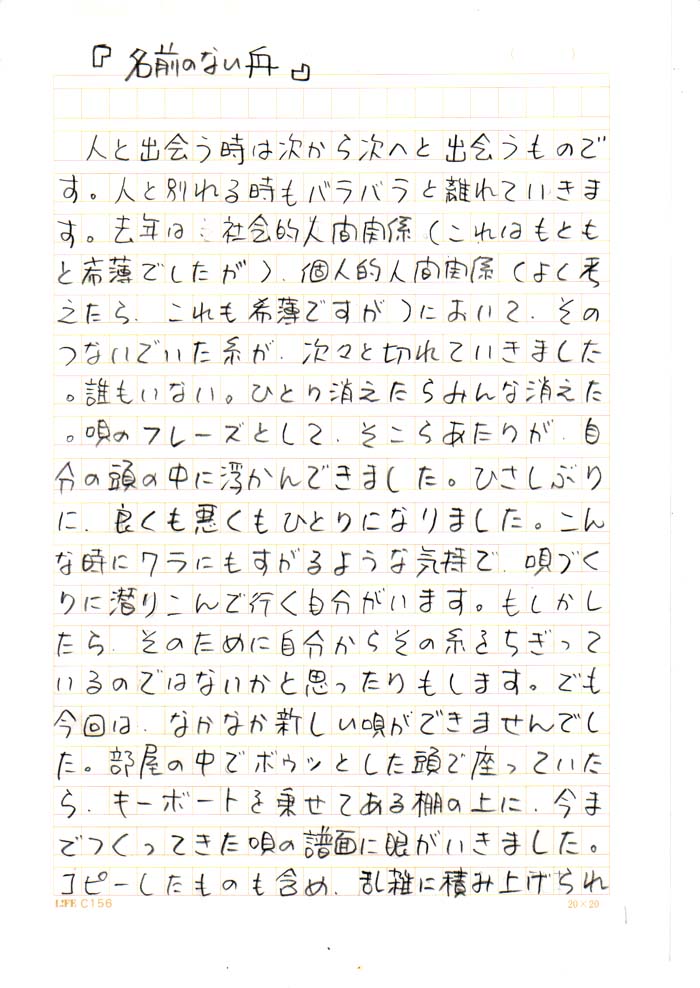 『名前のない舟』
人と出会う時は次から次へと出会うもので
す。人と別れる時もバラバラと離れていきま
す。去年は、社会的人間関係(これはもとも
と希薄でしたが)、個人的人間関係(よく考
えたら、これも希薄ですが)において、その
つないでいた糸が、次々と切れていきました
。誰もいない。ひとり消えたらみんな消えた
。唄のフレーズとして、そこらあたりが、自
分の頭の中に浮かんできました。ひさしぶり
に、良くも悪くもひとりになりました。こん
な時にワラにもすがるような気持で、唄づく
りに潜りこんで行く自分がいます。もしかし
たら、そのために自分からその糸をちぎって
いるのではないかと思ったりもします。でも
今回は、なかなか新しい唄ができませんでし
た。部屋の中でボゥッとした頭で座っていた
ら、キーボートを乗せてある棚の上に、今ま
でつくってきた唄の譜面に眼がいきました。
コピーしたものも含め、乱雑に積み上げられ
LIFE C156 20×20